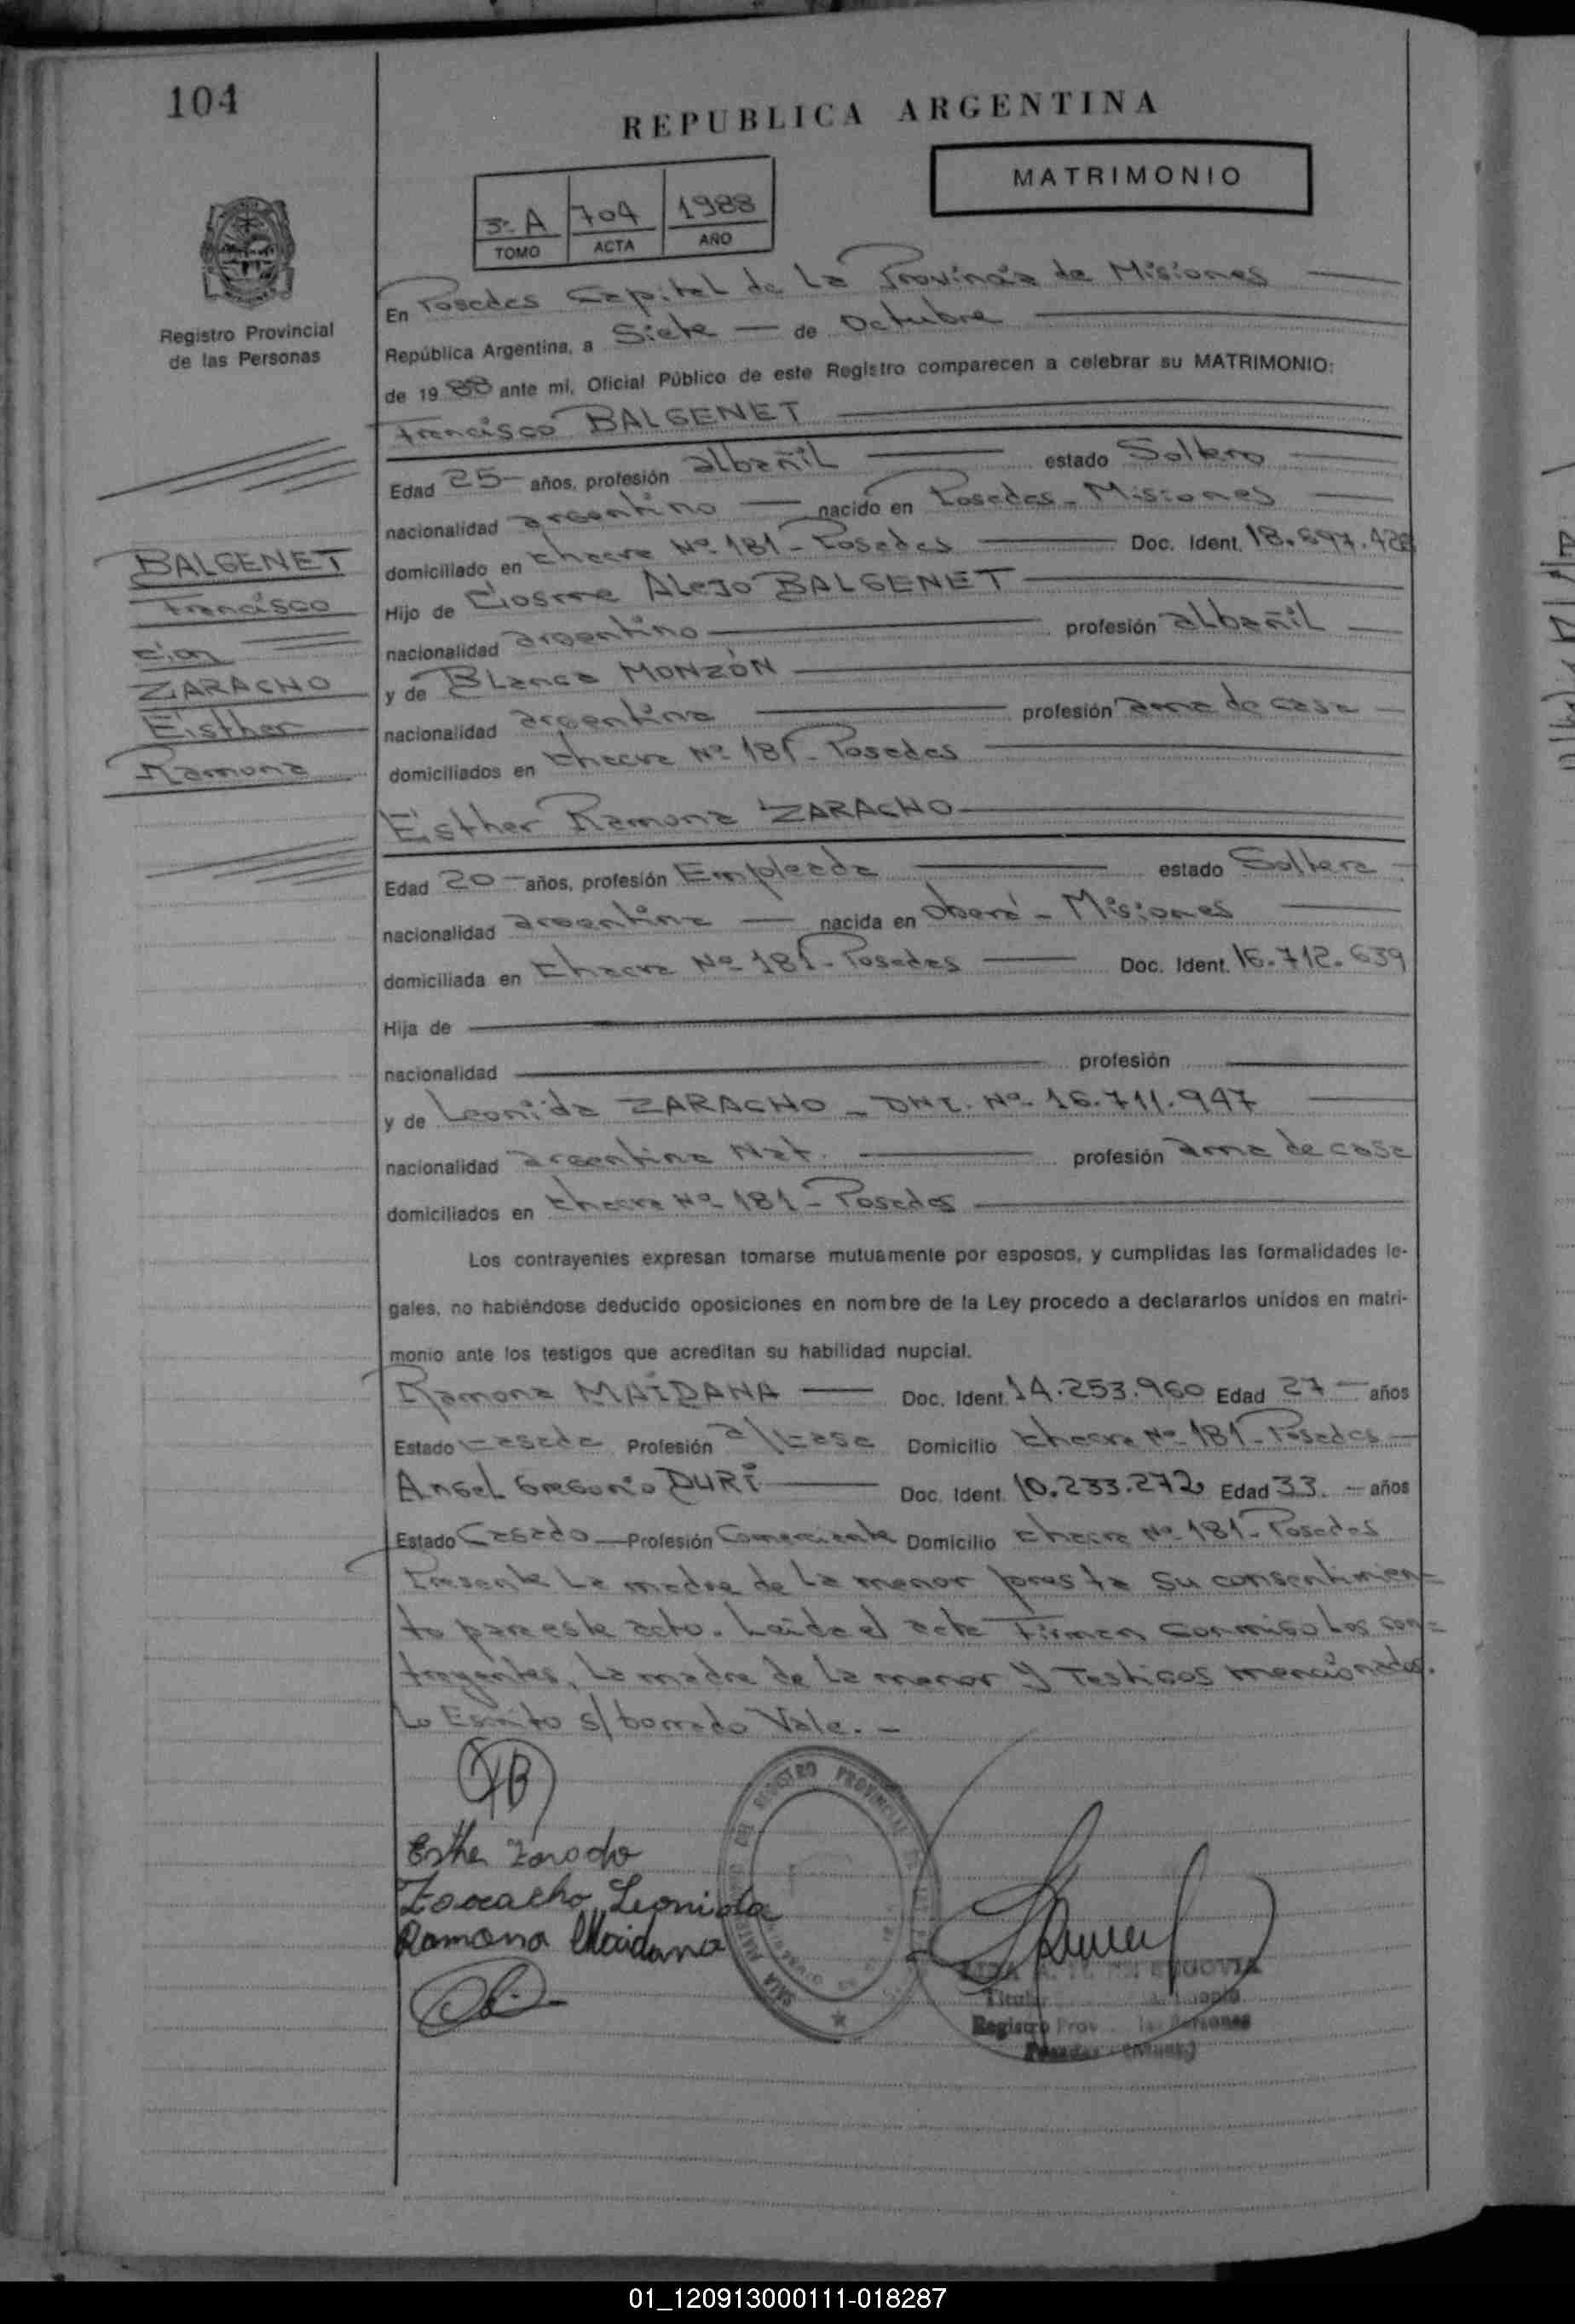 104
REPUBLICA ARGENTINA
MATRIMONIO
3º A 704 1988
TOMO ACTA AÑO
Registro Provincial
de las Personas
En Posadas Capital de La Provincia de Misiones
República Argentina, a Siete de Octubre
de 1988 ante mi, Oficial Público de este Registro comparecen a celebrar su MATRIMONIO:
Francisco BALGENET
Edad 25 años, profesión albañil estado Soltero
nacionalidad argentino nacido en Posadas - Misiones
domiciliado en Chacra Nº 181 - Posadas Doc. Ident. 18.
Hijo de Cosme Alejo BALGENET
nacionalidad argentino profesión albañil
y de Blanca MONZÓN
nacionalidad argentina profesión ama de casa
domiciliados en Chacra Nº 181 - Posadas
BALGENET
Francisco
con
ZARACHO
Esther
Ramona
Esther Ramona ZARACHO
Edad 20 años, profesión Empleada estado Soltera
nacionalidad argentina nacida en Oberá - Misiones
domiciliada en Chacra Nº 181 - Posadas Doc. Ident. 16.712.639
Hija de
nacionalidad profesión
y de Leonida ZARACHO - DNI. Nº 16.711.947
nacionalidad argentina Nat. profesión ama de casa
domiciliados en Chacra Nº 181 - Posadas
Los contrayentes expresan tomarse mutuamente por esposos, y cumplidas las formalidades le-
gales, no habiéndose deducido oposiciones en nombre de la Ley procedo a declararlos unidos en matri-
monio ante los testigos que acreditan su habilidad nupcial.
Ramona MAIDANA Doc. Ident. 14.253.960 Edad 27 años
Estado Casada Profesión a/Casa Domicilio Chacra Nº 181 - Posadas
Angel Gregorio DURI Doc. Ident. 10.233.272 Edad 33. años
Estado Casado Profesión Comerciante Domicilio Chacra Nº 181 - Posadas
Presente La madre de La menor presta su consentimien=
to para este acto. Leída el acta Firman conmigo Los con=
trayentes, La madre de La menor y Testigos mencionados.
Lo Escrito s/ borrado Vale. -
FB
Esther Zaracho
Zaracho Leonida
Ramona Maidana
REGISTRO PROVINCIAL
SEGOVIA
Titular
Registro Prov. las Personas
Posadas (Mnes.)
01_120913000111-018287